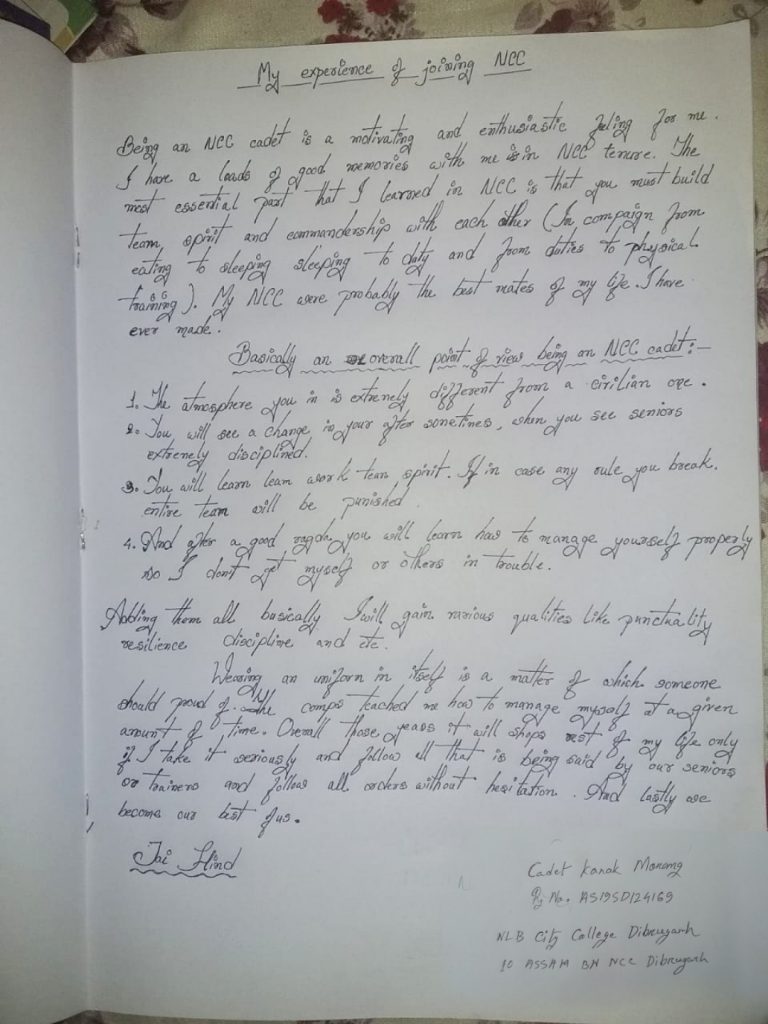 My experience of joining NCC
Being an NCC cadet is a motivating and enthusiastic feling for me.
I have a loads of good memories with me is in NCC tenure. The
most essential part that I learned in NCC is that you must build
team, spirit and commandership with each other (In compaign from
eating to sleeping sleeping to duty and from duties to physical
training). My NCC were probably the best mates of my life. I have
ever made.
Basically an overall point of view being an NCC cadet:-
1. The atmosphere you in is extrenely different from a civilian one.
2. You will see a change in your after sonetines, when you see seniors
extrenely disciplined.
3. You will learn leam work tean spirit. If in case any rule you break.
entire team will be punished
4. And after a good ragda, you will learn how to manage yourself properly
so I dont get myself or others in trouble.
Adding them all busically I will gain various qualities like punctuality
resilience discipline and etc.
Wearing an uniforn in itself is a matter of which someone
should proud of. The comps teached me how to manage myself at a given
amount of time. Overall those years it will shops rest of my life only
if I take it seriously and follow all that is being said by our seniors
or trainers and follow all orders without hesitation. And lastly we
become our best of us.
Jai Hind
Cadet Kanak
No. AS19SD124169
NLB City College Dibrugarh
10 ASSAM BN NCC Dibrugarh